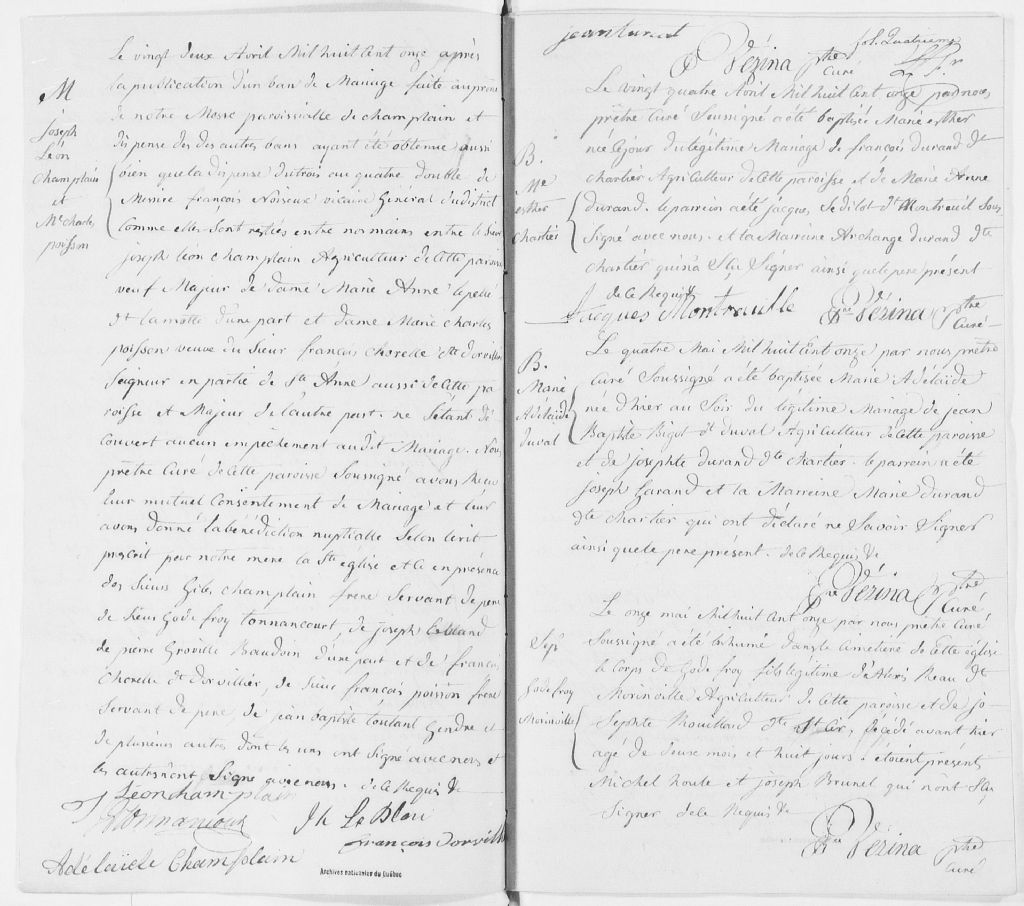 M
joseph
Léon
champlain
et
Me charles
poisson
Le vingt deux Avril Mil huit Cent onze après
la publication d'un ban de Mariage faite au prone
de notre Messe paroissialle de champlain et
dispense des des autres bans ayant été obtenue aussi
bien que la dispense du trois au quatre double de
Messire françois Noiseux vicaire Général du district
Comme elles sont restées entre nos mains entre le Sieur
joseph léon champlain Agriculteur de Cette paroisse
veuf Majeur de dame Marie Anne lepellé
dt lamotte d'une part et dame Marie charles
poisson veuve du Sieur françois chorelle dt dorvillier
Seigneur en partie de Ste Anne aussi de Cette pa
roisse et Majeur de l'autre part. ne S'étant dé
couvert aucun empêchement au dit Mariage. Nous
prêtre Curé de Cette paroisse Soussigné avons Reçu
leur mutuel Consentement de Mariage et leur
avons donné la bénédiction nuptialle Selon le rit
prescrit par notre mere la Ste église et ce en présence
des Sieurs Giles champlain frere Servant de pere
de Sieur Godefroy tonnancourt, de joseph Leblanc
de pierre Groville Baudoin d'une part et de françois
Chorelle dt dorvillier, de Sieur françois poisson frere
Servant de pere, de jean baptiste toutant Gendre et
de plusieurs autres dont les uns ont Signé avec nous et
les autres n'ont Signé avec nous. de ce Requis de
Léon champlain
Jh Le Blan
françois Dorvill
Adélaïde Champlain
Archives nationales du Québec
jean turcot
fol. Quatrieme
Vézina ptre
Curé
B.
Me
esther
Chartier
Le vingt quatre Avril Mil huit Cent onze par nous
prêtre Curé Soussigné a été baptisée Marie esther
née le jour du légitime Mariage de françois durand dt
chartier Agriculteur de Cette paroisse et de Marie Anne
durand. le parrein a été jacques Sedilot dt Montreuil Sous
Signé avec nous. et la Marreine Archange durand dte
chartier qui n'a Sçu Signer ainsi que le pere présent
de ce Requis
Jacques Montraulle Vézina ptre
Curé
B.
Marie
Adélaïde
duval
Le quatre Mai Mil huit Cent onze par nous prêtre
Curé Soussigné a été baptisée Marie Adélaïde
née d'hier au Soir du légitime Mariage de jean
Baptiste Bigot dt duval Agriculteur de Cette paroisse
et de josephte durand dte chartier. le parrein a été
joseph Garand et la Marreine Marie durand
dte chartier qui ont déclaré ne Savoir Signer
ainsi que le pere présent. de ce Requis de
Vézina ptre
Curé
Sep
Godefroy
Morinville
Le onze mai Mil huit Cent onze par nous prêtre Curé
Soussigné a été inhumé dans le Cimetière de Cette église
le Corps de Godefroy fils légitime d'Alexis Beau dt
Morinville Agriculteur de Cette paroisse et de jo-
sephte Rouillard dte St Cir, décédé avant hier
agé de deux mois et huit jours. étoient présents
Michel houle et joseph Brunel qui n'ont Sçu
Signer de ce Requis de
Vézina ptre
Curé